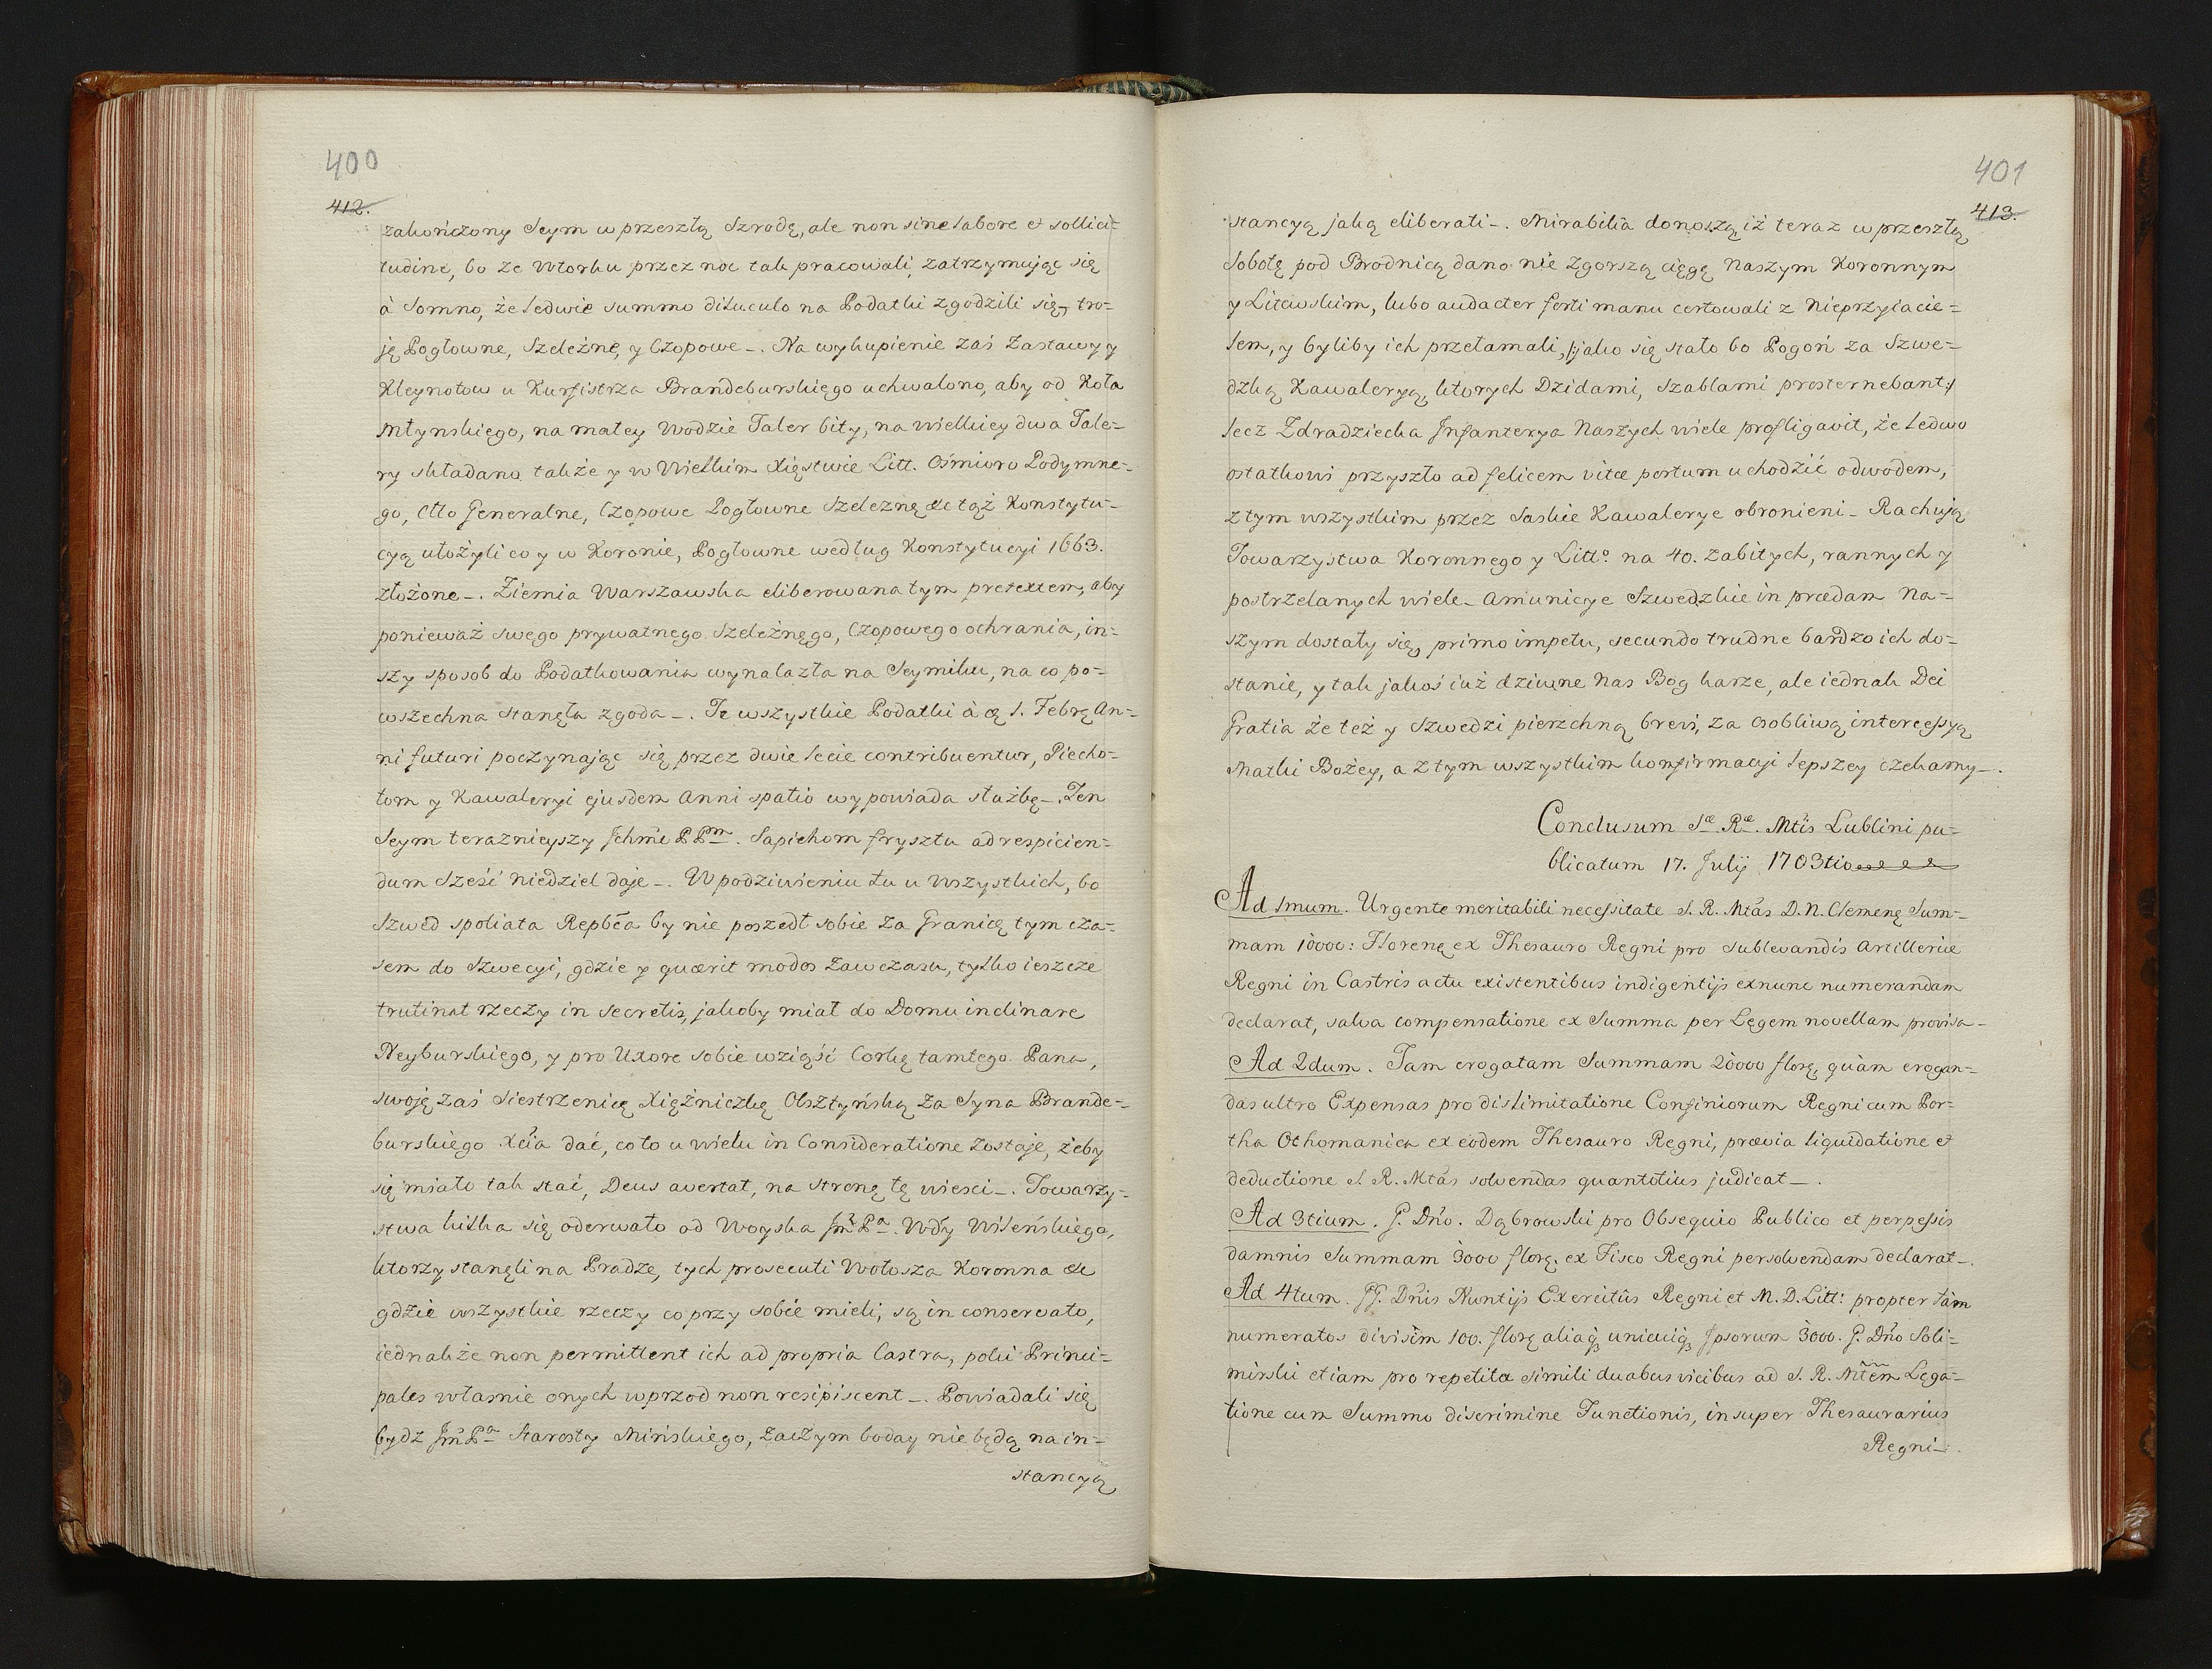 400
412.
zakończony Seym w przeszłą Szrodę, ale non sine labore et sollici=
tudine, bo ze Wtorku przez noc tak pracowali, zatrzymując się
à Somno, że ledwie summo diluculo na Podatki zgodzili się, tro=
ję Pogłowne, Szelężne, y Czopowe_. Na wykupienie zaś Zastawy y
Kleynotow u Kurfistrza Brandeburskięgo uchwalono, aby od Koła
Młynskięgo, na małey Wodzie Taler bity, na wielkiey dwa Tale=
ry składano także y w Wielkim Xięstwie Litt. Ośmioro Podymne=
go, Cło Generalne, Czopowe Pogłowne Szelezne &c tąż Konstytu=
cyą ułożyli co y w Koronie, Pogłowne według Konstytucyi 1663.
złożone_. Ziemia Warszawska eliberowana tym pretextem, aby
ponieważ swego prywatnego Szelężnęgo, Czopowego ochrania, in=
szy sposob do Podatkowania wynalazła na Seymiku, na co po=
wszechna stanęła zgoda_. Te wszystkie Podatki à 1. Febrę An=
ni futuri poczynając się przez dwie lecie contribuentur, Piecho=
tom y Kawaleryi ejusdem Anni spatio wypowiada służbę_. Ten
Seym teraznieyszy Ichme PPm. Sapiehom frysztu ad respicien=
dum Sześć niedziel daje_. W podziwieniu tu u Wszystkich, bo
Szwed spoliata Repbca by nie poszedł sobie za Granicę tym cza=
sem do Szwecyi, gdzie y quærit modos zawczasu, tylko ieszcze
trutinat rzeczy in secretis, jakoby miał do Domu inclinare
Neyburskiego, y pro Uxore sobie wziąść Corkę tamtego Pana,
swoję zaś Siestrzenicę Xięźniczkę Olsztyńską za Syna Brande=
burskiego Xcia dać, co to u wielu in Consideratione zostaje, żeby
się miało tak stać, Deus avertat, na stronę tę wiesci_. Towarzy=
stwa kilka się oderwało od Woyska Jm Pa. Wdy Wileńskiego,
ktorzy stanęli na Pradze, tych prosecuti Wołosza Koronna &c
gdzie wszystkie rzeczy co przy sobie mieli, są in conservato,
iednakże non permittent ich ad propria Castra, poki Princi=
pales własnie onych wprzod non resipiscent_. Powiadali się
bydz Jm Pa Starosty Mińskiego, zaczym boday nie będą na in=
stancyą
401
413.
stancyą jaką eliberati_. Mirabilia donoszą iż teraz w przeszłą
Sobotę pod Brodnicą dano nie zgorszą cięgę Naszym Koronnym
y Litewskim, lubo audacter forti manu certowali z Nieprzyiacie=
lem, y byliby ich przełamali, /:jako się stało bo Pogoń za Szwe=
dzką Kawaleryą, ktorych Dzidami, Szablami prosternebant:/
lecz Zdradziecka Infanterya Naszych wiele profligavit, że ledwo
ostatkowi przyszło ad felicem vitæ portum uchodzić odwodem,
z tym wszystkim przez Saskie Kawalerye obronieni_ Rachują
Towarzystwa Koronnego y Litto. na 40. zabitych, rannych y
postrzelanych wiele_ Amunicye Szwedzkie in prædam Na=
szym dostały się, primo impetu, secundo trudne bardzo ich do=
stanie, y tak jakoś iuż dziwne Nas Bog karze, ale iednak Dei
Gratia że też y Szwedzi pierzchną brevi, za osobliwą intercessyą
Matki Bożey, a z tym wszystkim konfirmacyi lepszey czekamy_.
Conclusum Sæ. Ræ. Mtis Lublini pu=
blicatum 17. Julij 1703tio
Ad 1mum. Urgente meritabili necessitate S. R. Mtas D. N. Clemenę Sum=
mam 10000: Florenę ex Thesauro Regni pro sublevandis Artilleriæ
Regni in Castris actu existentibus indigentijs exnunc numerandam
declarat, salva compensatione ex Summa per Legem novellam provisa_
Ad 2dum. Tam erogatam Summam 20000 florę, quàm erogan=
das ultro Expensas pro dislimitatione Confiniorum Regni cum Por=
tha Othomanica ex eodem Thesauro Regni, prævia liquidatione et
deductione S. R. Mtas solvendas quantotius judicat_.
Ad 3tium. G. Dno. Dąbrowski pro Obsequio Publico et perpessis
damnis Summam 3000 florę. ex Fisco Regni persolvendam declarat_.
Ad 4tum. GG. Dnis Nuntijs Exercitûs Regni et M. D. Litt: propter tàm
numeratos divisim 100. florę aliaq unicuiq Ipsorum 3000. G. Dno Soli=
mirski etiam pro repetita simili duabus vicibus ad S. R. Mtem Lega=
tione cum Summo discrimine Functionis, insuper Thesaurarius
Regni_.